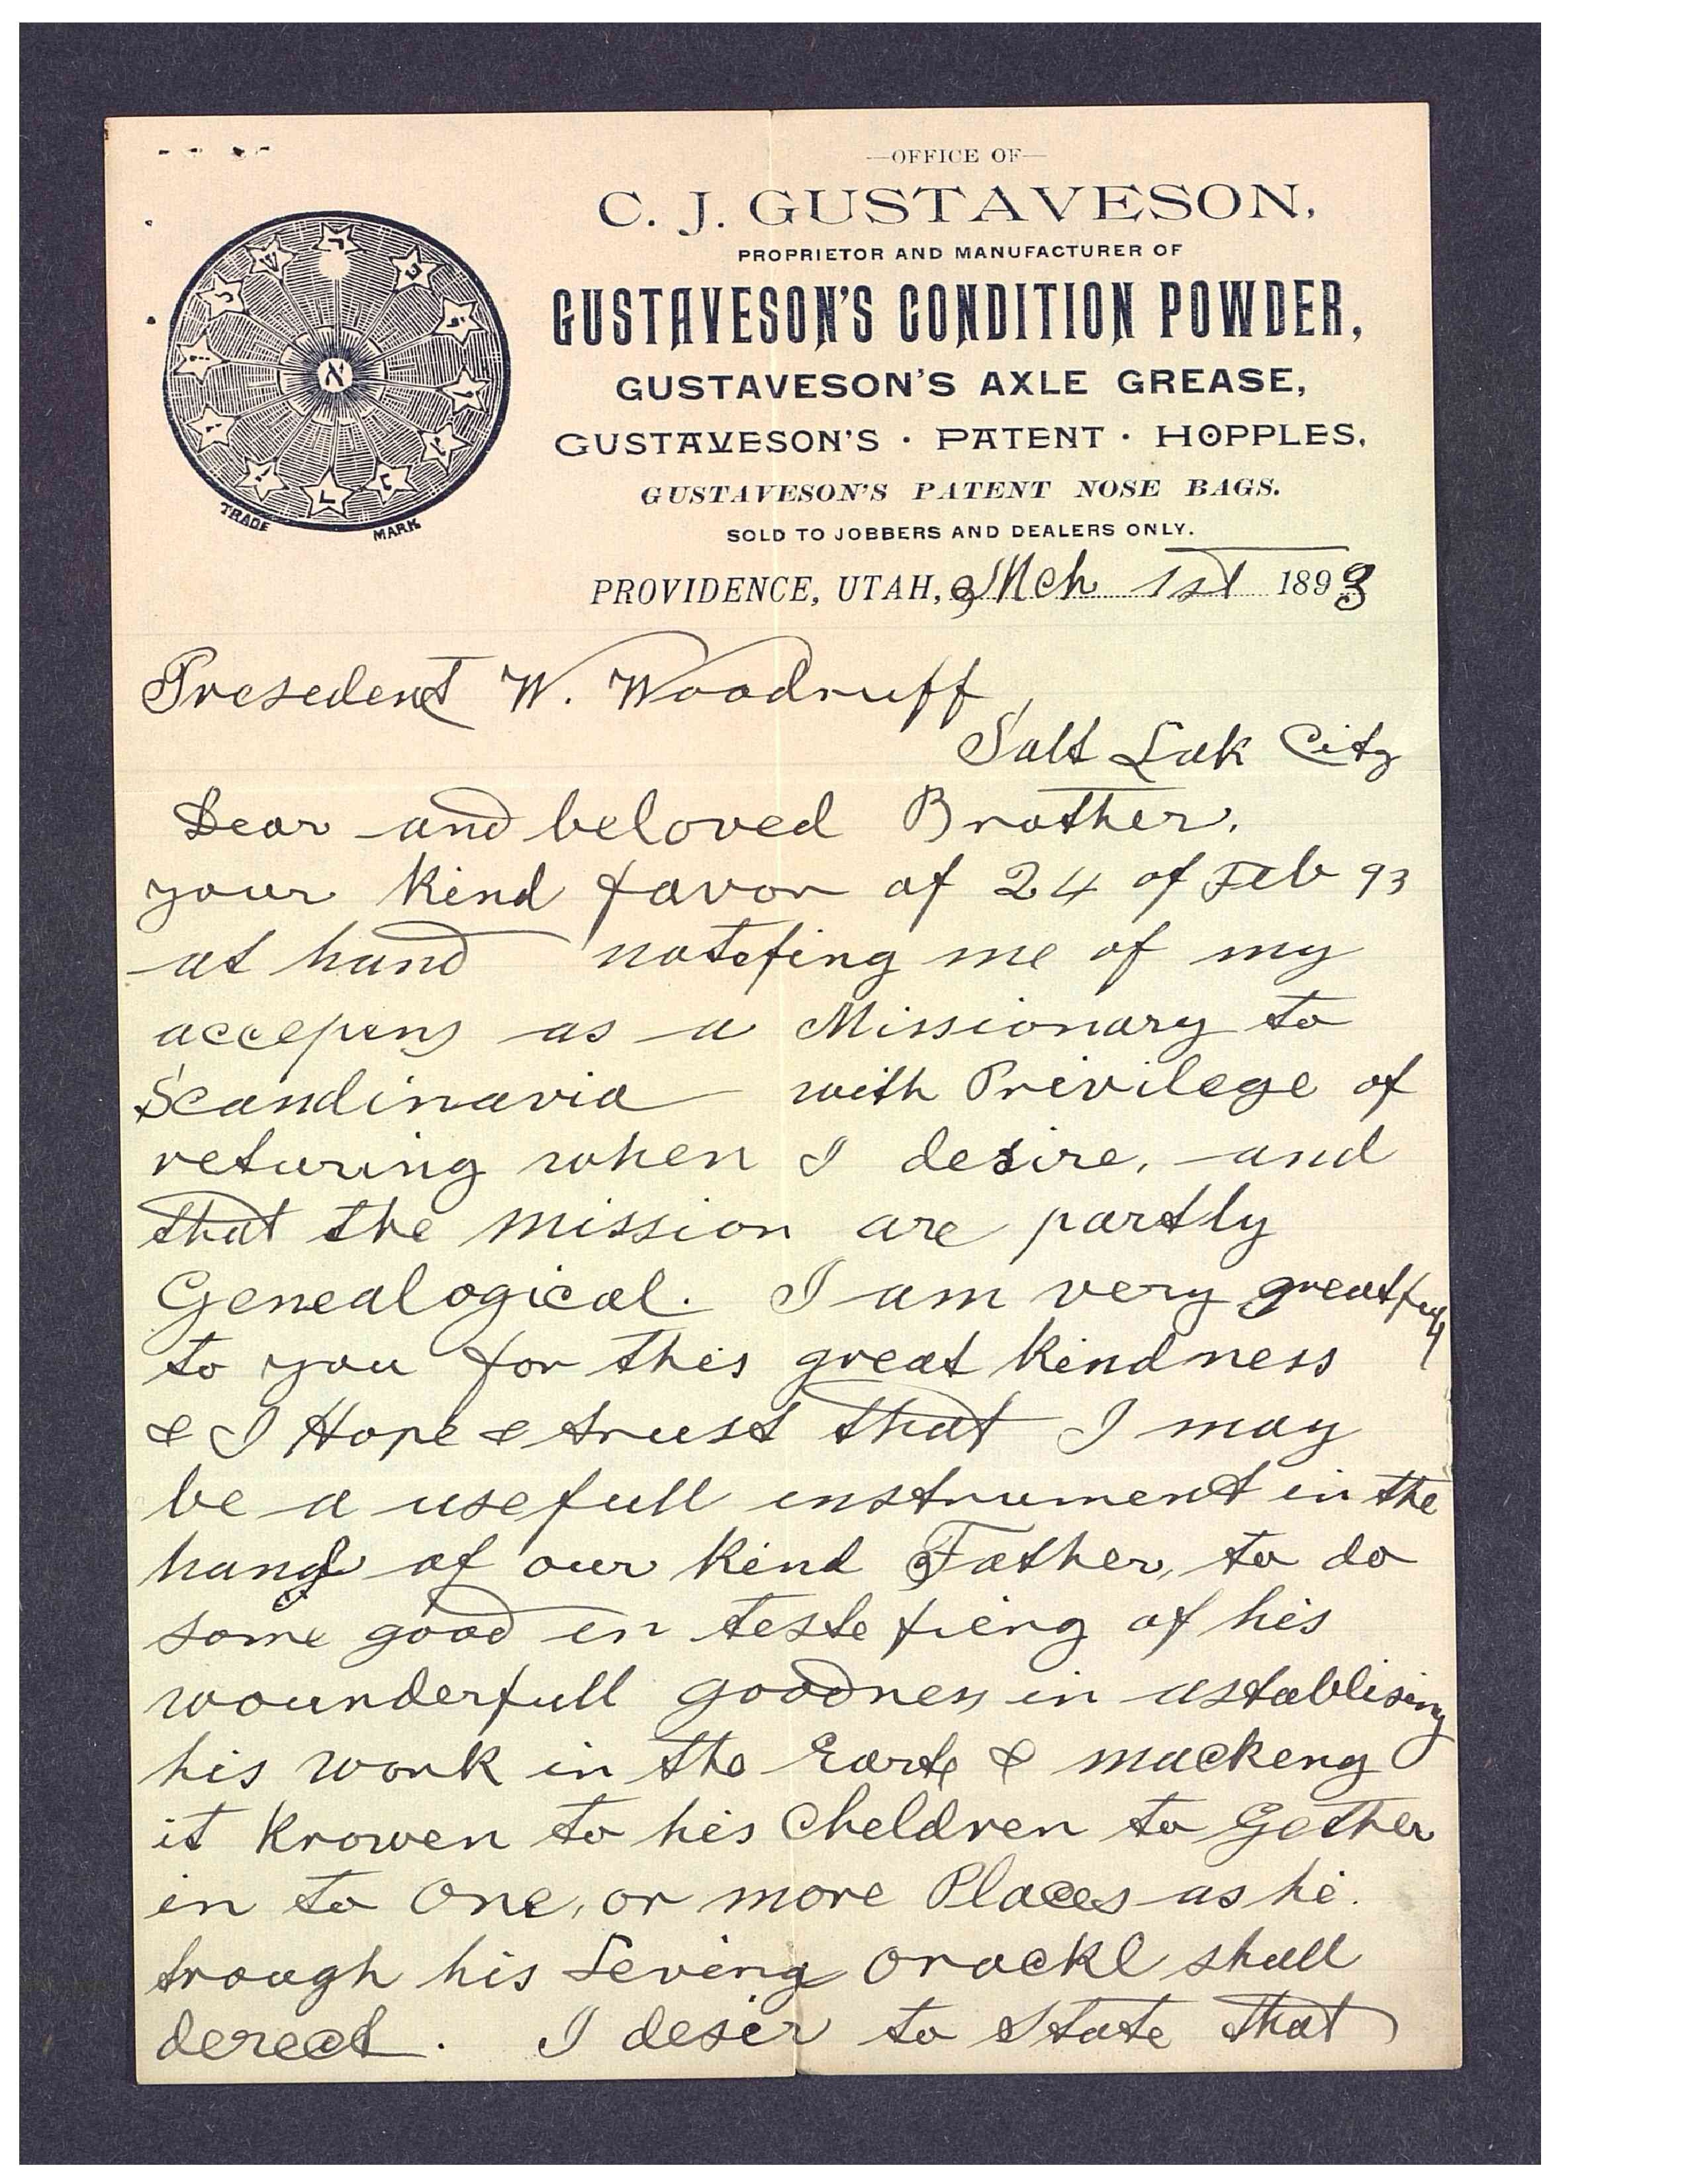 —OFFICE OF—
C. J. GUSTAVESON,
PROPRIETOR AND MANUFACTURER OF
GUSTAVESON'S CONDITION POWDER,
GUSTAVESON'S AXLE GREASE,
GUSTAVESON'S · PATENT · HOPPLES,
GUSTAVESON'S PATENT NOSE BAGS.
SOLD TO JOBBERS AND DEALERS ONLY.
א
TRADE MARK
PROVIDENCE, UTAH, Mch 1st 1893
Presedent W. Woodruff,
Salt Lak City
Dear and beloved Brother.
your kind favor of 24 of Feb 93
at hand notefing me of my
as a Missionary to
Scandinavia with Privilege of
returing when I desire, and
that the mission are partly
Genealogical. I am very greatfull
to you for this great kindness
& I Hope & trust that I may
be a usefull instrument in the
hands of our kind Father, to do
some good in testefieng of his
wounderfull goodness in astablising
his work in the & mackeng
it knowen to his Cheldren to Gether
in to One, or more Places as he.
trough his Leving orackl shall
dereect. I desir to state that